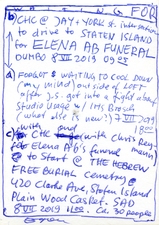 WAITING FOR
b) CHC @ JAY + YORK st. intersection
to drive to STATEN ISLAND
for ELENA AB FUNERAL
DUMBO 8 VII 2019 0928
a) FOUGHT & WAITING TO COOL DOWN
(my mind) outside of LOFT
after J.S. got into a fight about
Studio Usage w/ Itty Bosch
(what else is new?) 7 VII 2019
with 1800
c) CHC with Chris Rey
for Elena A B's funeral
to Start @ THE HEBREW
FREE BURIAL Cemetery @
420 Clarke Ave, Staten Island
Plain Wood Casket. SAD
8 VII 2019 1100. Ca. 30 people